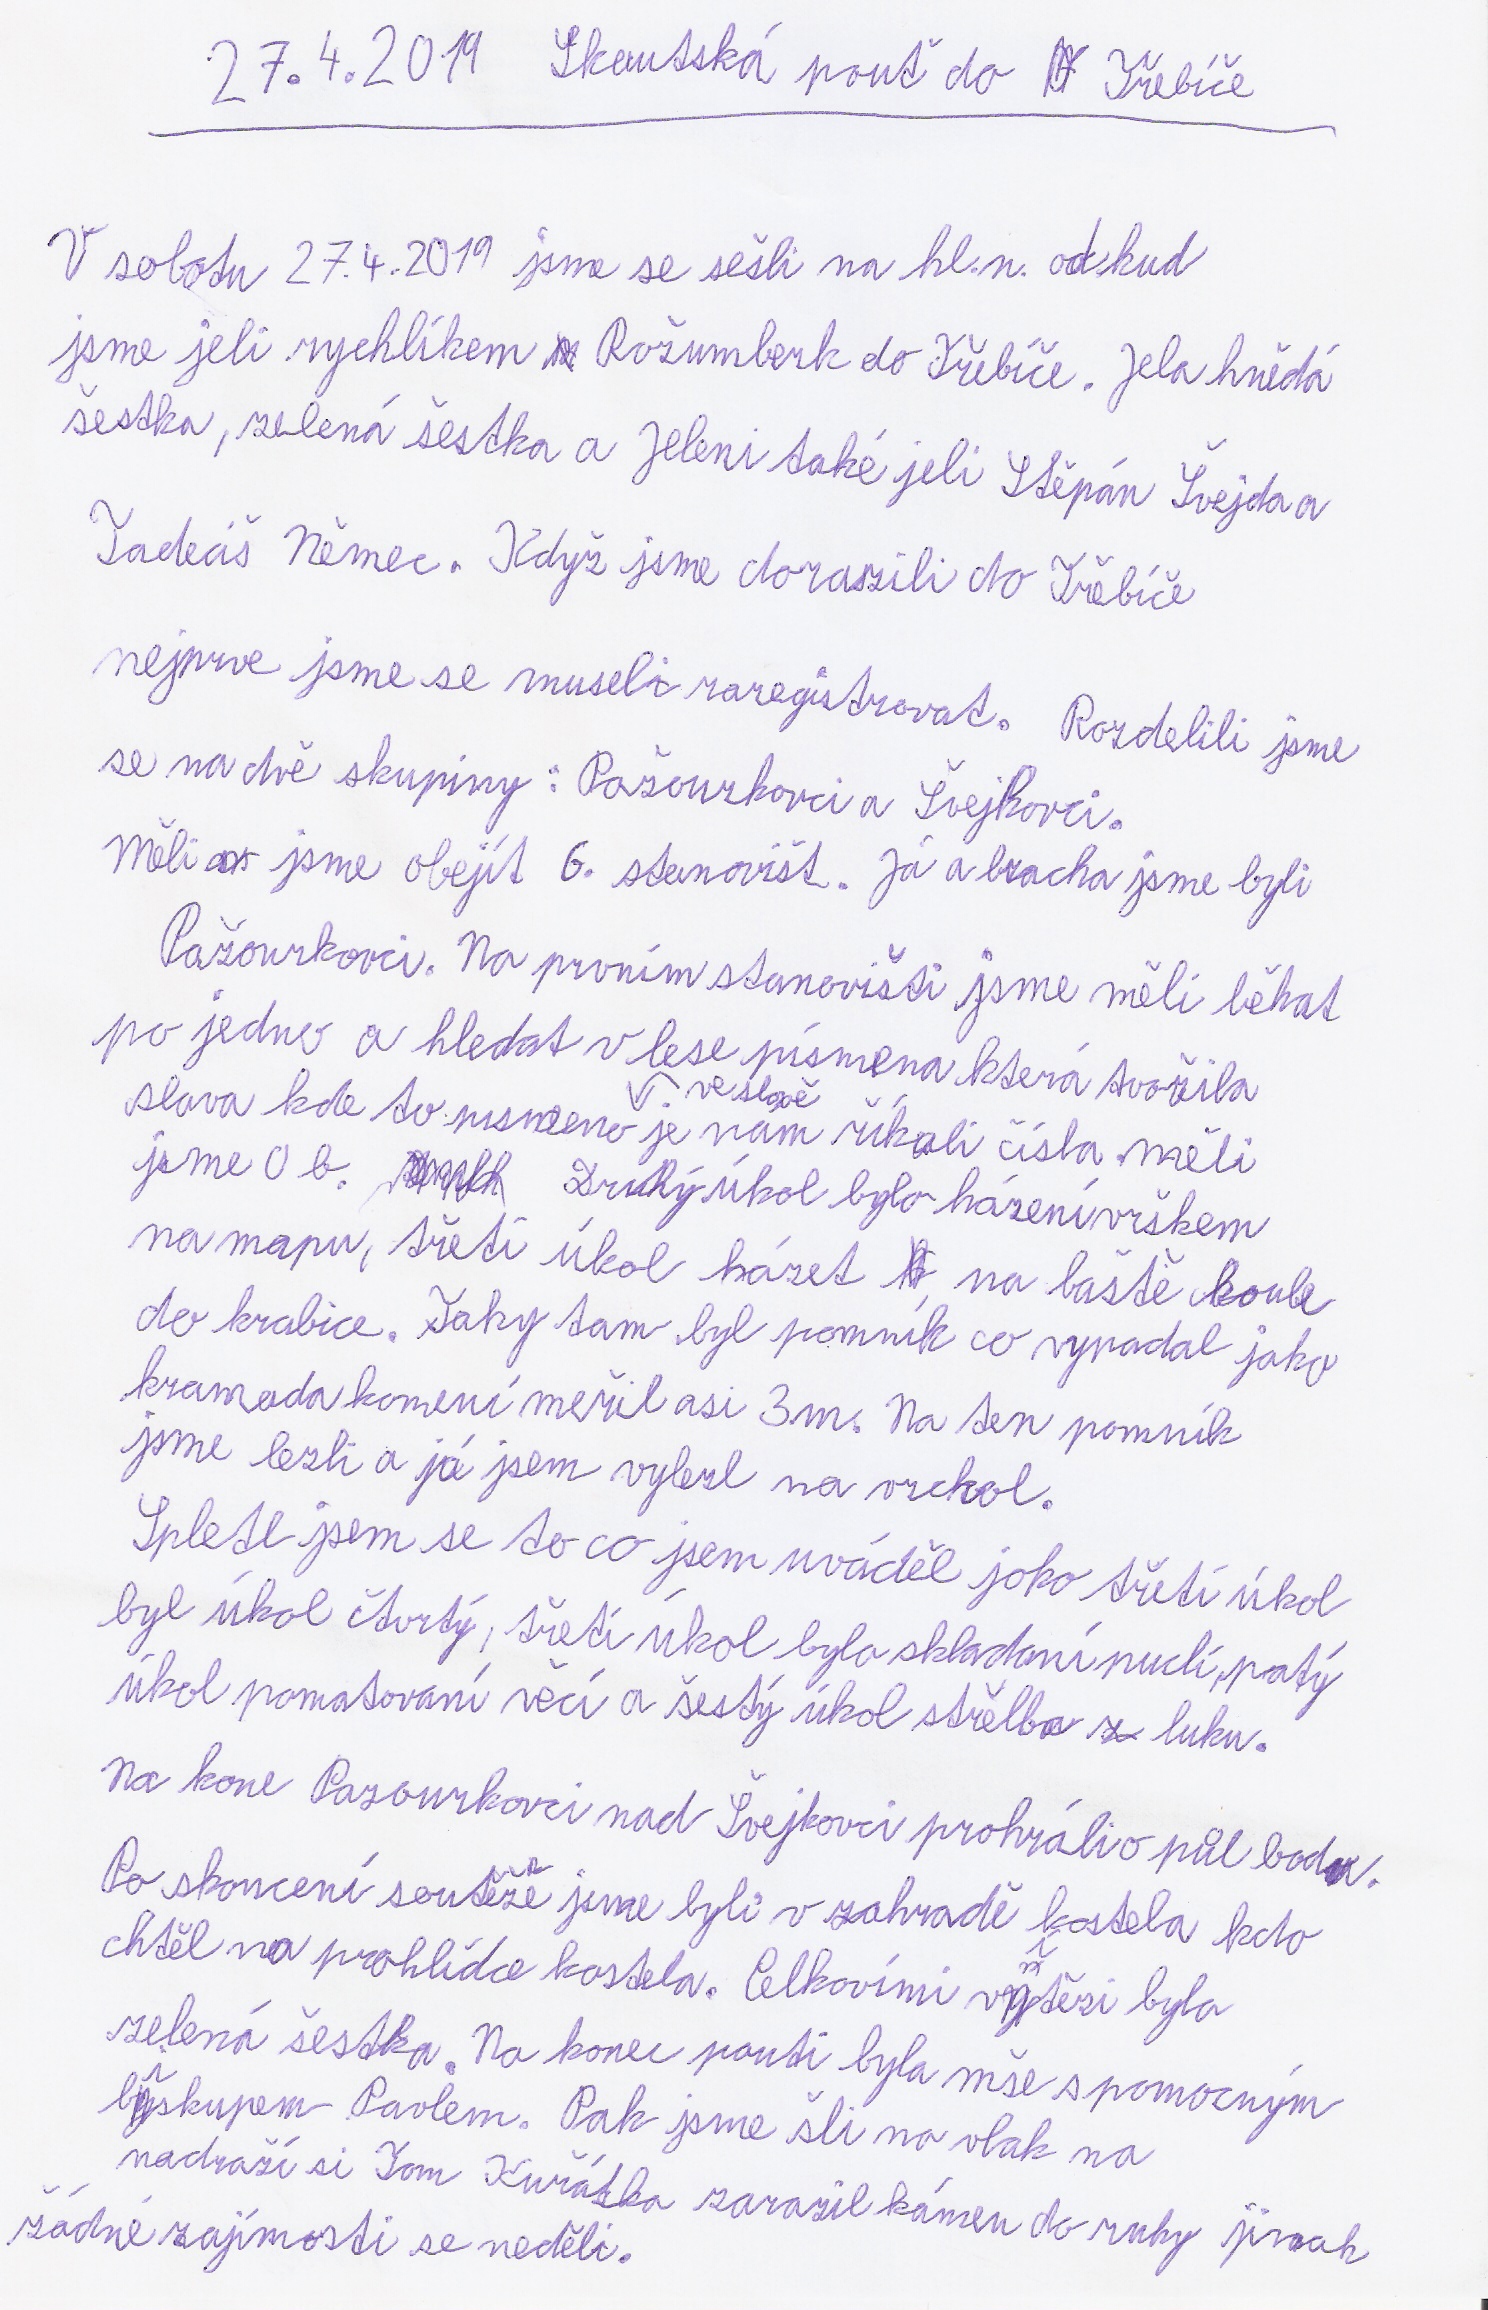 27.4.2019 Skautská pouť do Třebíče
V sobotu 27.4.2019 jsme se sešli na hl.n. odkud
jsme jeli rychlíkem Rožumberk do Třebíče. Jela hnědá
šestka, zelená šestka a Jeleni také jeli Štěpán Švejda a
Tadeáš Němec. Když jsme dorazili do Třebíče
nejprve jsme se museli zaregistrovat. Rozdelili jsme
se na dvě skupiny: Pažourkovci a Švejkovci.
Měli jsme obejít 6. stanovišt. Já a bracha jsme byli
Pažourkovci. Na prvním stanovišti jsme měli běhat
po jedno a hledat v lese písmena která tvořila
slova kde to pismeno je ve slově nám říkali čísla. měli
jsme 0 b. Druhý úkol bylo házení vrškem
na mapu, třetí úkol házet na baště koule
do krabice. Taky tam byl pomník co vypadal jako
kramada kamení meřil asi 3m. Na ten pomník
jsme lezli a já jsem vylezl na vrchol.
Spletl jsem se to co jsem uváděl jako třetí úkol
byl úkol čtvrtý, třetí úkol bylo skladaní puclí, patý
úkol pamatovaní věcí a šestý úkol střelba z luku.
Na kone Pazourkovci nad Švejkovci prohráli o půl bodu.
Po skoncení soutěže jsme byli v zahradě kostela kdo
chtěl na prohlídce kostela. Celkovími vítězi byla
zelená šestka. Na konec pouti byla mše s pomocným
biskupem Pavlem. Pak jsme šli na vlak na
nadraží si Tom Kuřátka zarazil kámen do ruky jinak
žádné zajímosti se neděli.